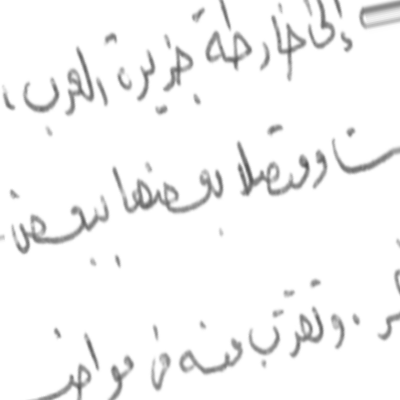 إلى خارطة جزيرة العرب،
ومتصلا بعضها ببعض
وتقترب منه في مواضع